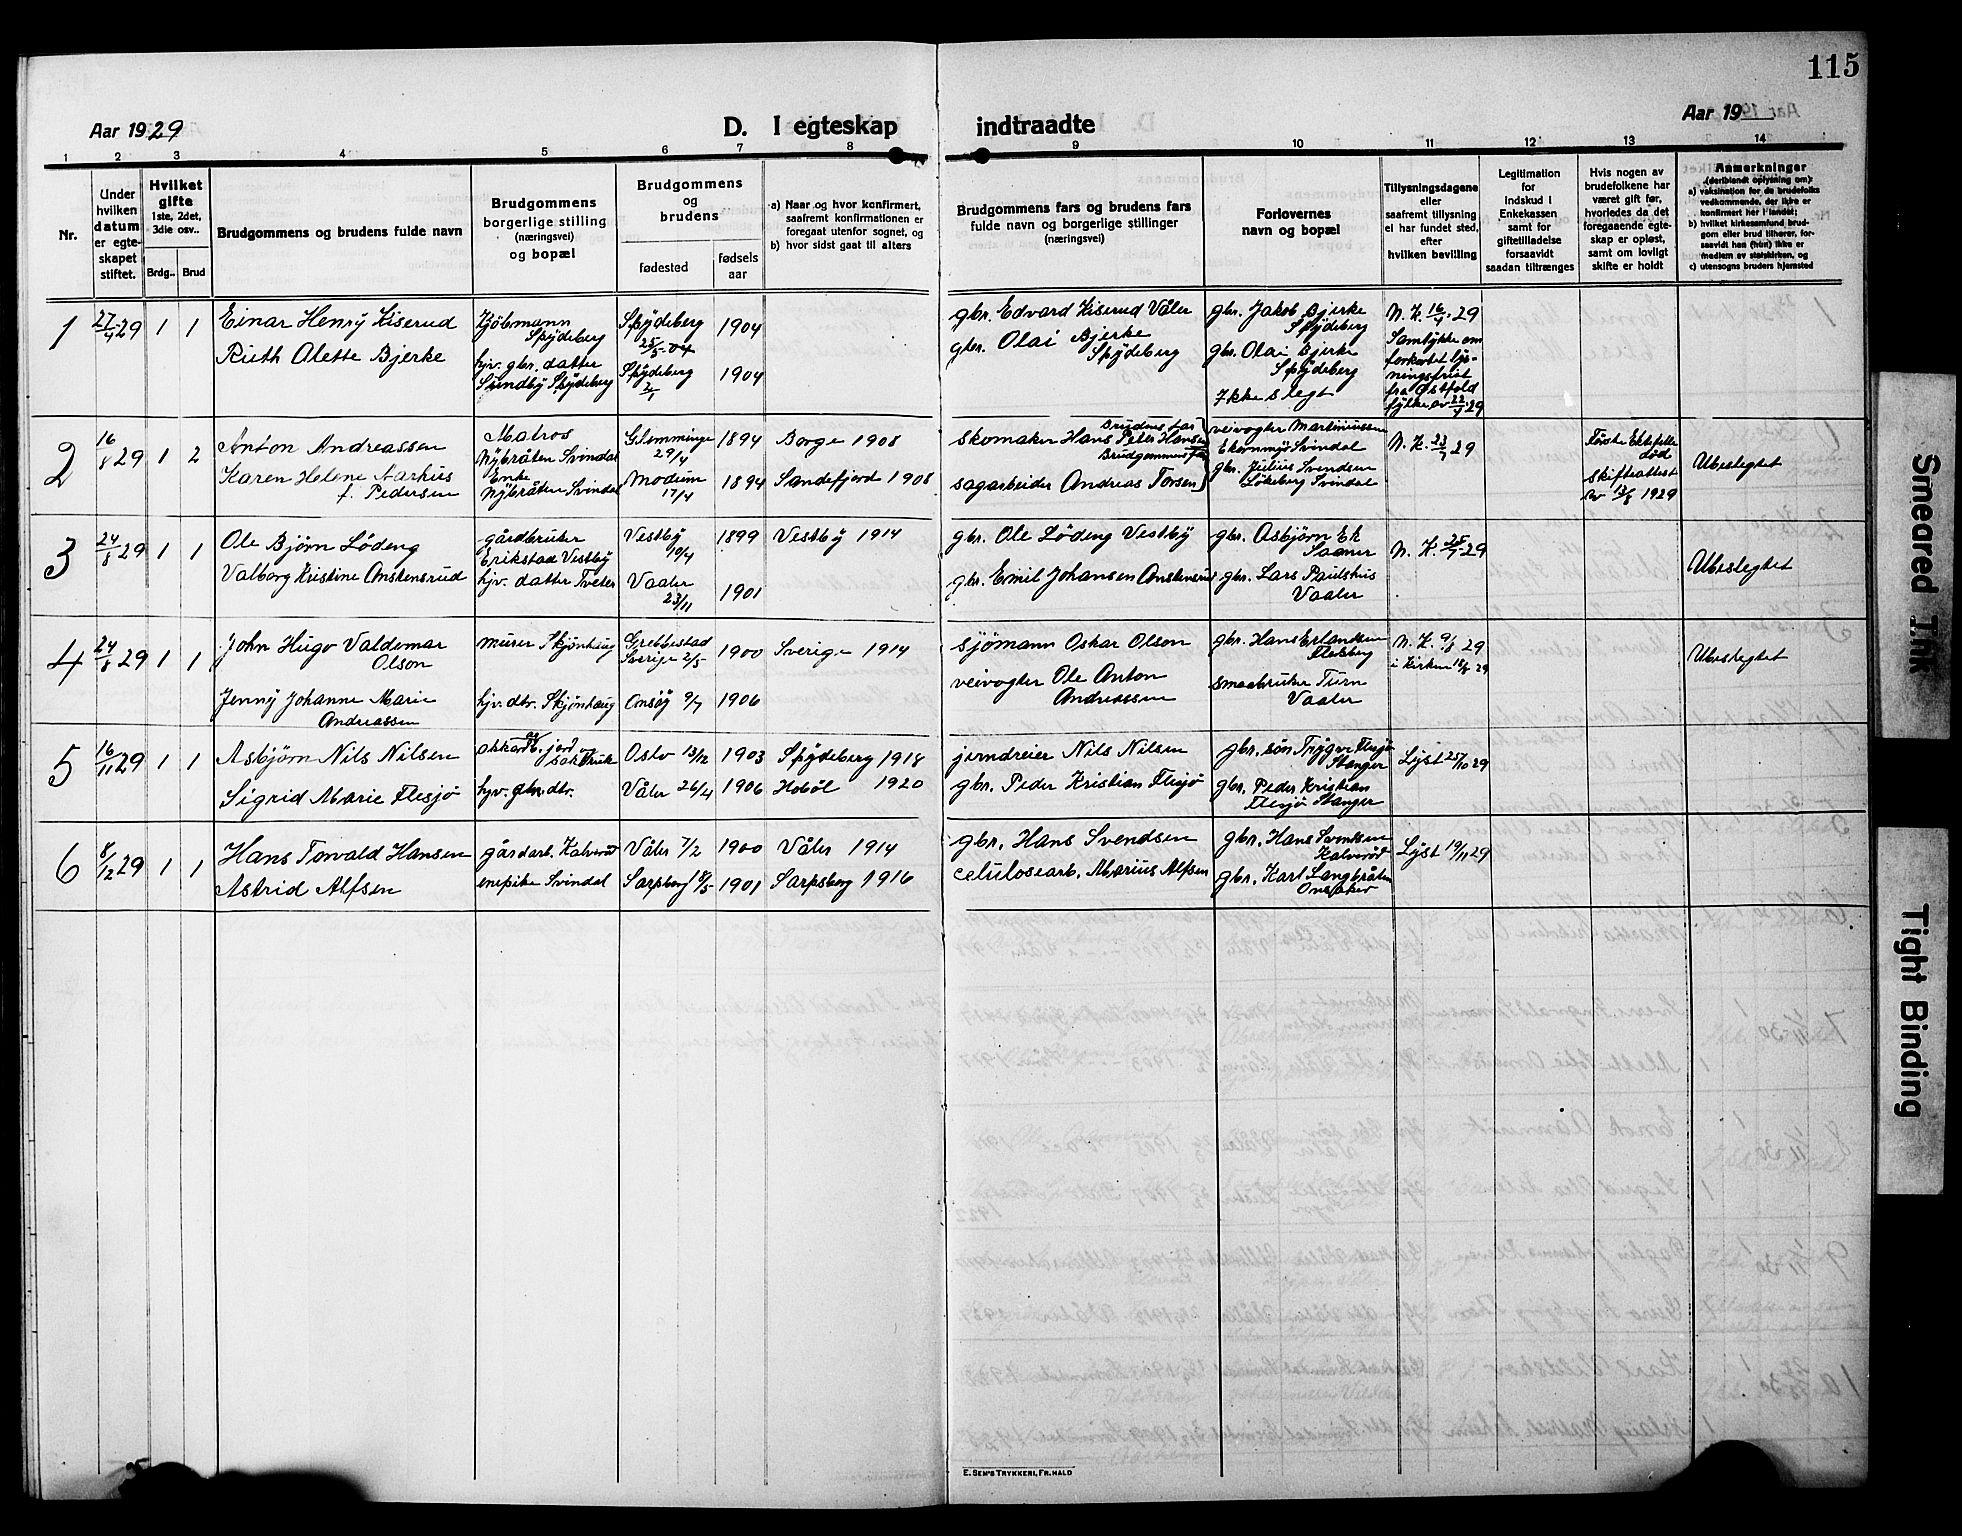 115
Aar 1929
D. I egteskap indtraadte
Aar 19
1 2 3 4 5 6 7 8 9 10 11 12 13 14
Nr.
Under hvilken datum er egte-skapet stiftet.
Hvilket gifte
1ste, 2det, 3die osv..
Brdg.. Brud
Brudgommens og brudens fulde navn
Brudgommens borgerlige stilling (næringsvei) og bopæl
Brudgommens og brudens
fødested
fødsels aar
a) Naar og hvor konfirmert, saafremt konfirmationen er foregaat utenfor sognet, og
b) hvor sidst gaat til alters
Brudgommens fars og brudens fars fulde navn og borgerlige stillinger (næringsvei)
Forlovernes navn og bopæl
Tillysningsdagene eller saafremt tillysning ei har fundet sted, efter hvilken bevilling
Legitimation for Indskud i Enkekassen samt for giftetilladelse forsaavidt saadan tiltrænges
Hvis nogen av brudefolkene har været gift før, hvorledes da det foregaaende egte-skap er opløst, samt om lovligt skifte er holdt
Anmerkninger
(deriblandt oplysning om):
a) vaksination for de brudefolks vedkommende, der ikke er konfirmert her i landet;
b) hvilket kirkesamfund brud-gom eller brud tilhører, for-saavidt han (hun) ikke er medlem av statskirken, og
c) utensogns bruders hjemsted
1 27/4 29 1 1 Einar Henry Kiserud
Kjöbmann Spydeberg
Spydeberg 25/5-04 1904
gbr. Edvard Kiserud Våler
gbr. Jakob Bjerke Spydeberg
N. K. 16/4 - 29
Ruth Olette Bjerke
hjv. gbr. datter Sundby Spydeberg
Spydeberg 2/1 1904
gbr. Olai Bjerke Spydeberg
gbr. Olai Bjerke Spydeberg
Ikke slegt
Samtykke om forkortet lys-ningsfrist fra Østfold fylke av 22/4-29
2 16/8 29 1 2 Anton Andreassen
Matros Nybråten Svindal
Glemminge 29/4 1894 Borge 1908
skomaker Hans Peter Hansen
Brudens far
Brudgommens far
veivogter Martiniussen Ekornmyr Svindal
N. K. 23/7 29
Første Ektefelle død
Skifteattest av 13/8 1929
Ubeslegtet
Karen Helene Aarhus f. Pedersen
Enke Nybråten Svindal
Modum 17/4 1894 Sandefjord 1908
sagarbeider Andreas Torsen
gbr. Julius Svendsen Lökeberg Svindal
3 24/8 29 1 1 Ole Bjørn Lödeng
gårdbruker Erikstad Vestby
Vestby 10/4 1899 Vestby 1914
gbr. Ole Lödeng Vestby
gbr. Asbjörn Ek Saaner
N. K. 25/7 29
Ubeslegtet
Valborg Kristine Anstensrud
hjv. datter Tveter
Vaaler 23/11 1901
gbr. Emil Johansen Anstensrud
gbr. Lars Paulshus Vaaler
4 24/8 29 1 1 John Hugo Valdemar Olson
murer Skjönhaug
Grebbestad Sverige 2/5 1900 Sverige 1914
sjömann Oskar Olson
gbr. Hans Erlandsen Flesberg
N. K. 9/8 29
i Kirken 18/8 29
Ubeslegtet
Jenny Johanne Marie Andreassen
hjv. dtr. Skjönhaug
Onsöy 9/7 1906
veivogter Ole Anton Andreassen
smaabruker Turn Vaaler
5 16/11 29 1 1 Asbjørn Nils Nilsen
Oslo 13/12 1903 Spydeberg 1918
jerndreier Nils Nilsen
gbr. søn Trygve Flesjö Stanger
Lyst 25/10 29
Sigrid Marie Flesjö
hjv. gbr. dtr.
Våler 26/4 1906 Hobøl 1920
gbr. Peder Kristian Flesjö
gbr. Peder Kristian Flesjö Stanger
6 8/12 29 1 1 Hans Torvald Hansen
gårdarb. Kalverød
Våler 7/2 1900 Våler 1914
gbr. Hans Svendsen
gbr. Hans Svendsen Kalverød
Lyst 19/11 29
Astrid Alfsen
enepike Svindal
Sarpsborg 8/5 1901 Sarpsborg 1916
celulosearb. Marius Alfsen
gbr. Karl Langbråten Onsaker
E. SEM'S TRYKKERI, FR.HALD
Smeared Ink
Tight Binding